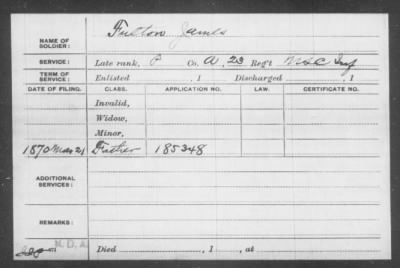 NAME OF SOLDIER: Fulton James
SERVICE: Late rank, P Co. A, 23 Reg't USC Inf
TERM OF SERVICE: Enlisted , 1 Discharged , 1
DATE OF FILING. CLASS. APPLICATION NO. LAW. CERTIFICATE NO.
Invalid,
Widow,
Minor,
1870 Mar 21 Father 185348
ADDITIONAL SERVICES:
REMARKS:
N. D. A.
Died , 1 , at